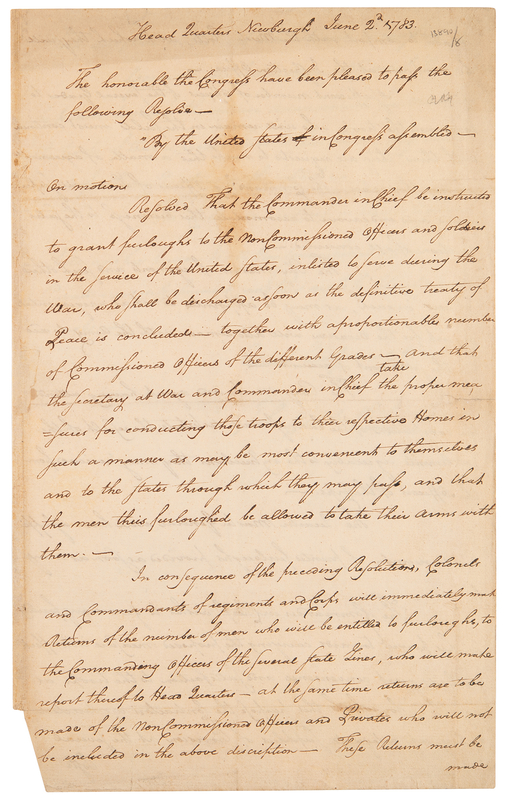 Head Quarters Newburgh June 2.d 1783.
The honorable the Congress have been pleased to pass the
following Resolve —
"By the United States in Congress assembled —
On motion
Resolved That the Commander in Chief be instructed
to grant furloughs to the NonCommissioned Officers and soldiers
in the service of the United States, inlisted to serve during the
War, who shall be discharged as soon as the definitive treaty of
Peace is concluded — together with a proportionable number
of Commissioned Officers of the different Grades — and that
the Secretary at War and Commander in Chief take the proper mea
=sures for conducting those troops to their respective Homes in
such a manner as may be most convenient to themselves
and to the states through which they may pass, and that
the men thus furloughed be allowed to take their Arms with
them. —
In consequence of the preceding Resolution, Colonels
and Commandants of regiments and Corps will immediately make
Returns of the number of men who will be entitled to furloughs, to
the Commanding Officers of the several state Lines, who will make
report thereof to Head Quarters — at the same time returns are to be
made of the NonCommissioned Officers and Privates who will not
be included in the above discription — These Returns must be
made